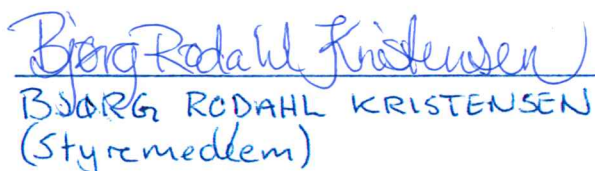 Bjørg Rodahl Kristensen
BJØRG RODAHL KRISTENSEN
(Styremedlem)